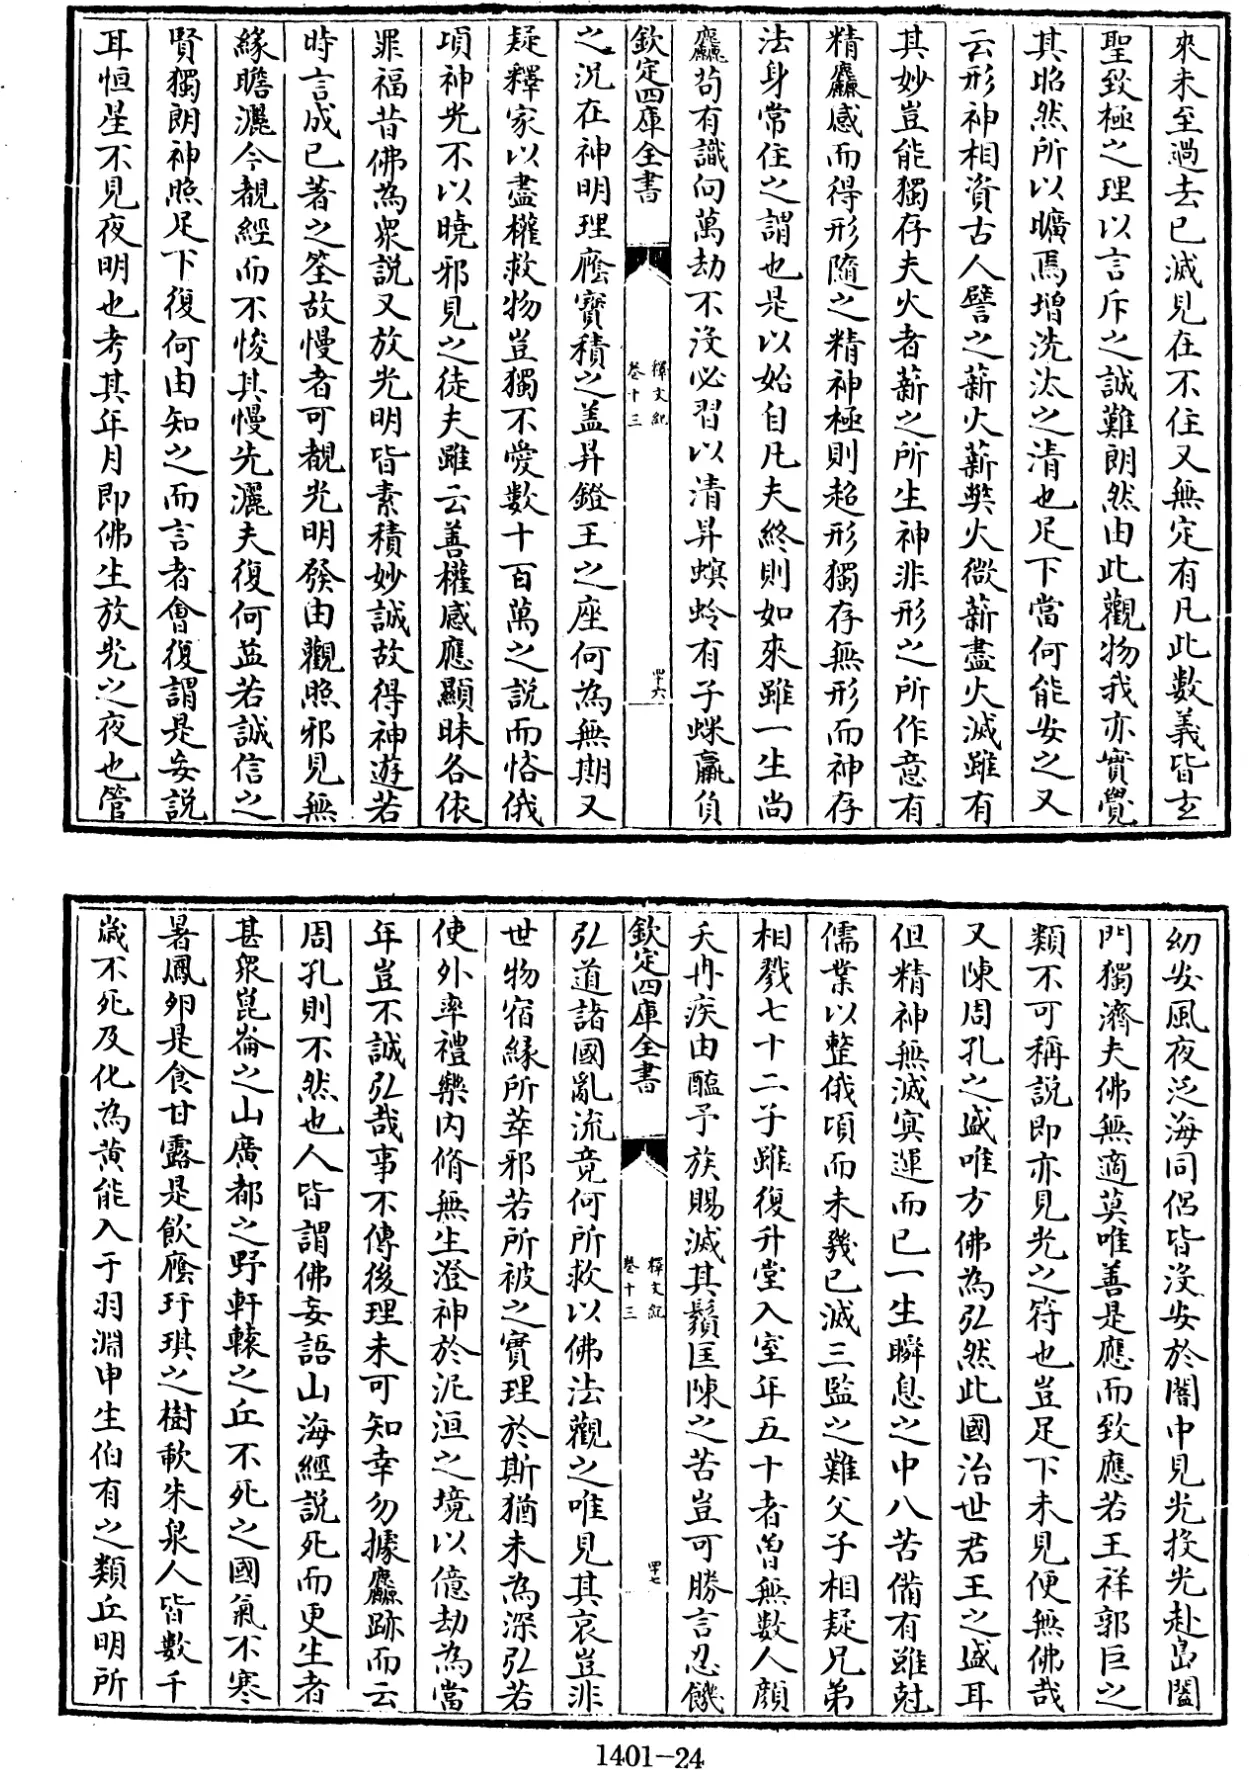 來未至過去已滅見在不住又無定有凡此數義皆玄
聖致極之理以言斥之誠難朗然由此觀物我亦實覺
其昭然所以曠焉增洗汰之清也足下當何能安之又
云形神相資古人譬之薪火薪弊火微薪盡火滅雖有
其妙豈能獨存夫火者薪之所生神非形之所作意有
精麤感而得形隨之精神極則超形獨存無形而神存
法身常住之謂也是以始自凡夫終則如來雖一生尚
麤茍有識向萬劫不沒必習以清昇螟蛉有子蜾蠃負
欽定四庫全書
釋文紀
卷十三
四十六
之況在神明理廕寶積之盖昇鐙王之座何為無期又
疑釋家以盡權救物豈獨不愛數十百萬之説而悋俄
頃神光不以曉邪見之徒夫雖云善權感應顯昧各依
罪福昔佛為衆説又放光明皆素積妙誠故得神遊若
時言成已著之筌故慢者可覩光明發由觀照邪見無
緣瞻灑今覩經而不悛其慢先灑夫復何益若誠信之
賢獨朗神照足下復何由知之而言者會復謂是妄説
耳恒星不見夜明也考其年月即佛生放光之夜也管
幼安風夜泛海同侶皆沒安於闇中見光投光赴島闔
門獨濟夫佛無適莫唯善是應而致應若王祥郭巨之
類不可稱説即亦見光之符也豈足下未見便無佛哉
又陳周孔之盛唯方佛為弘然此國治世君王之盛耳
但精神無滅冥運而已一生瞬息之中八苦備有雖尅
儒業以整俄頃而未幾已滅三監之難父子相疑兄弟
相戮七十二子雖復升堂入室年五十者曾無數人顔
夭冉疾由醢予族賜滅其鬚匡陳之苦豈可勝言忍饑
欽定四庫全書
釋文紀
卷十三
四十七
弘道諸國亂流竟何所救以佛法觀之唯見其哀豈非
世物宿緣所萃邪若所被之實理於斯猶未為深弘若
使外率禮樂内脩無生澄神於泥洹之境以億劫為當
年豈不誠弘哉事不傳後理未可知幸勿據麤跡而云
周孔則不然也人皆謂佛妄語山海經説死而更生者
甚衆崑崙之山廣都之野軒轅之丘不死之國氣不寒
暑鳳卵是食甘露是飲廕玗琪之樹歃朱泉人皆數千
歲不死及化為黄能入于羽淵申生伯有之類丘明所
1401-24